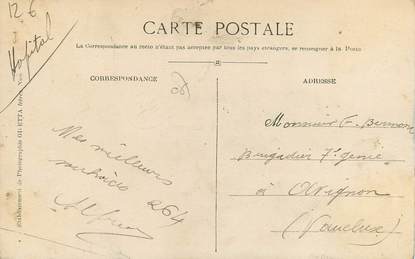 12.6
Hopital
CARTE POSTALE
La Correspondance au recto n'étant pas acceptée par tous les pays étrangers, se renseigner à la Poste
CORRESPONDANCE
ADRESSE
Mes meilleurs
264
Monsieur
Brigadier 7e génie
à Avignon
(Vaucluse)
Etablissement de Photographie